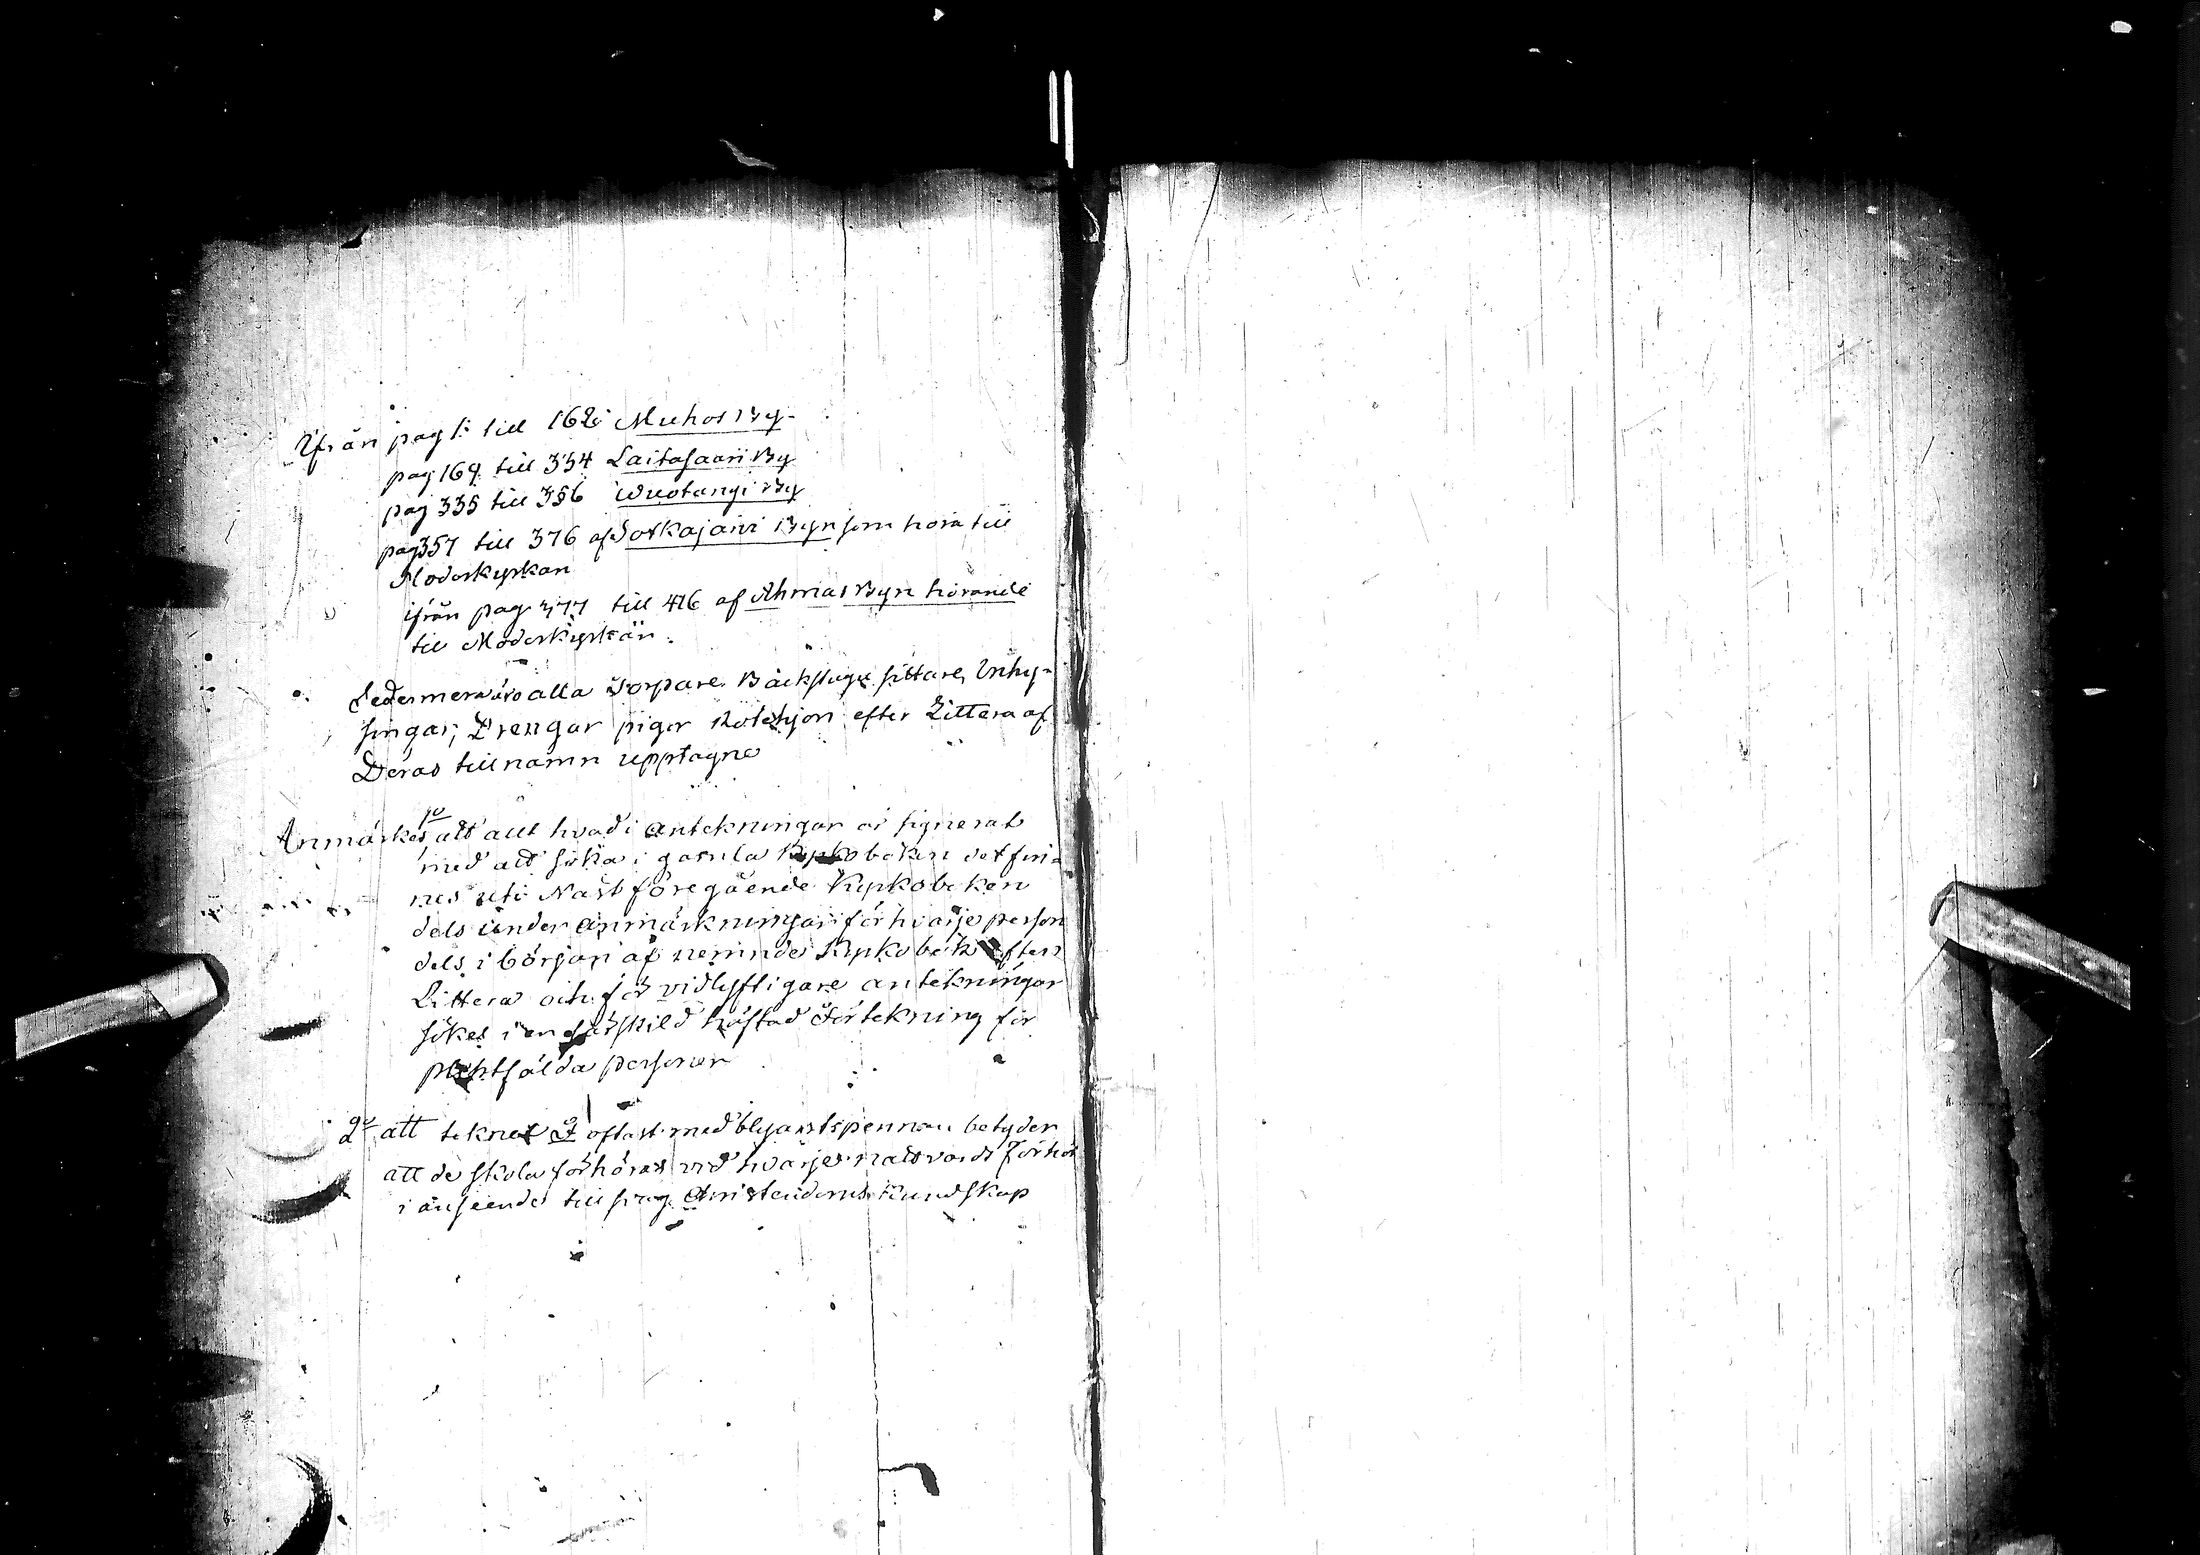 Ifrån pag 1: till 162: Muhos By.
pag 169 till 334 Laitasaari By
pag 335 till 356 Wuotangi By
pag 357 till 376 af Sotkajärvi Byn som höra till
Moderkyrkan
ifrån pag 377 till 416 af Ahmas Byn hörande
till Moderkyrkan.
Sedermera äro alla Torpare Backstugu sittare, Inhy-
singar, Drengar pigor Rotehjon efter Littera af
Deras tillnamn upptagne
Anmärkes 1o att allt hvad i antekningar är signerat
med att söka i gamla Kyrkoboken det fin-
nes uti Näst föregående Kyrkoboken
dels under anmärkningar för hvarje person
dels i början af nemnde Kyrkobok efter
Littera och för vidlyftigare antekningar
sökes i en särskild häftad Förtekning för
pliktfälda personer
2o att teknet oftast med blyartspennan betyder
att de skola förhöras vid hvarje nattvards Förhör
i anseende till svag Christendoms Kundskap